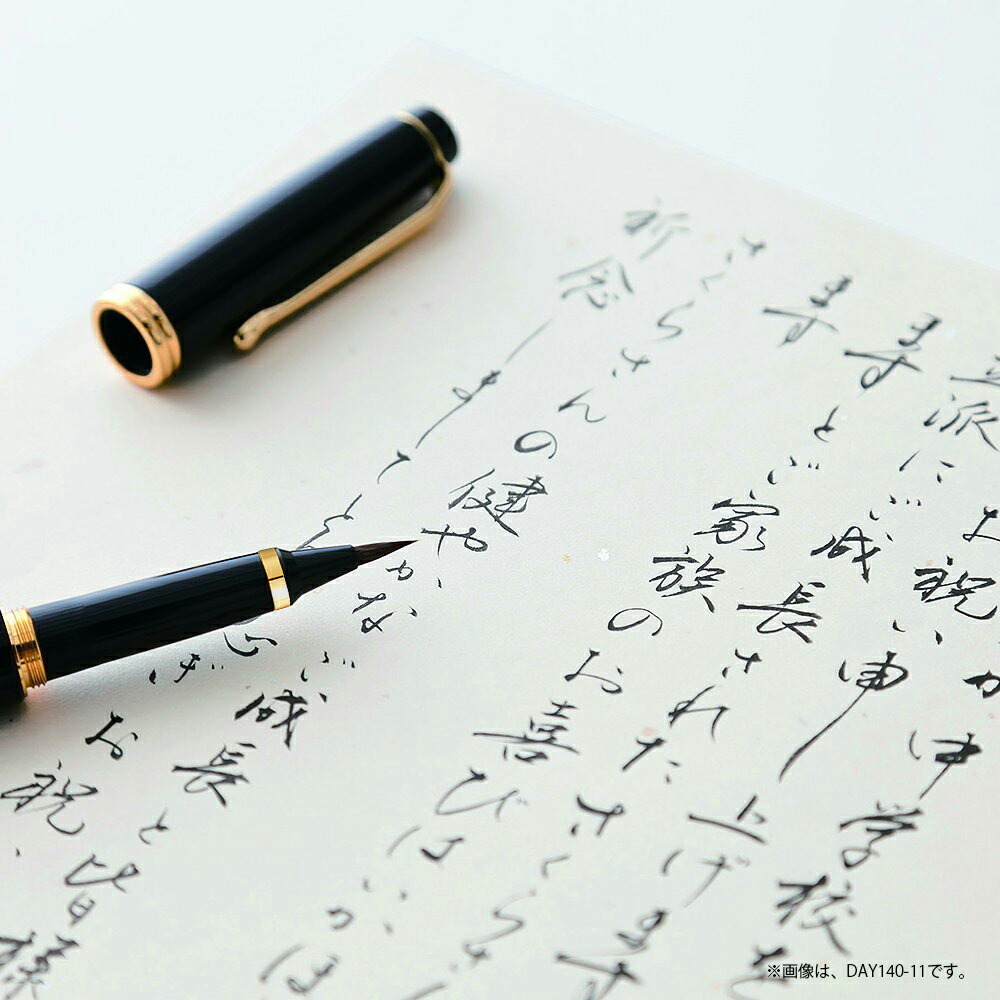 中学校を
お祝い申し上げます
立派にご成長されたさくらさ
ますとご家族のお喜びはいかほ
ます
さくらさんの健やかなご成長と皆様
祈念しましてと ぎお祝
※画像は、DAY140-11です。